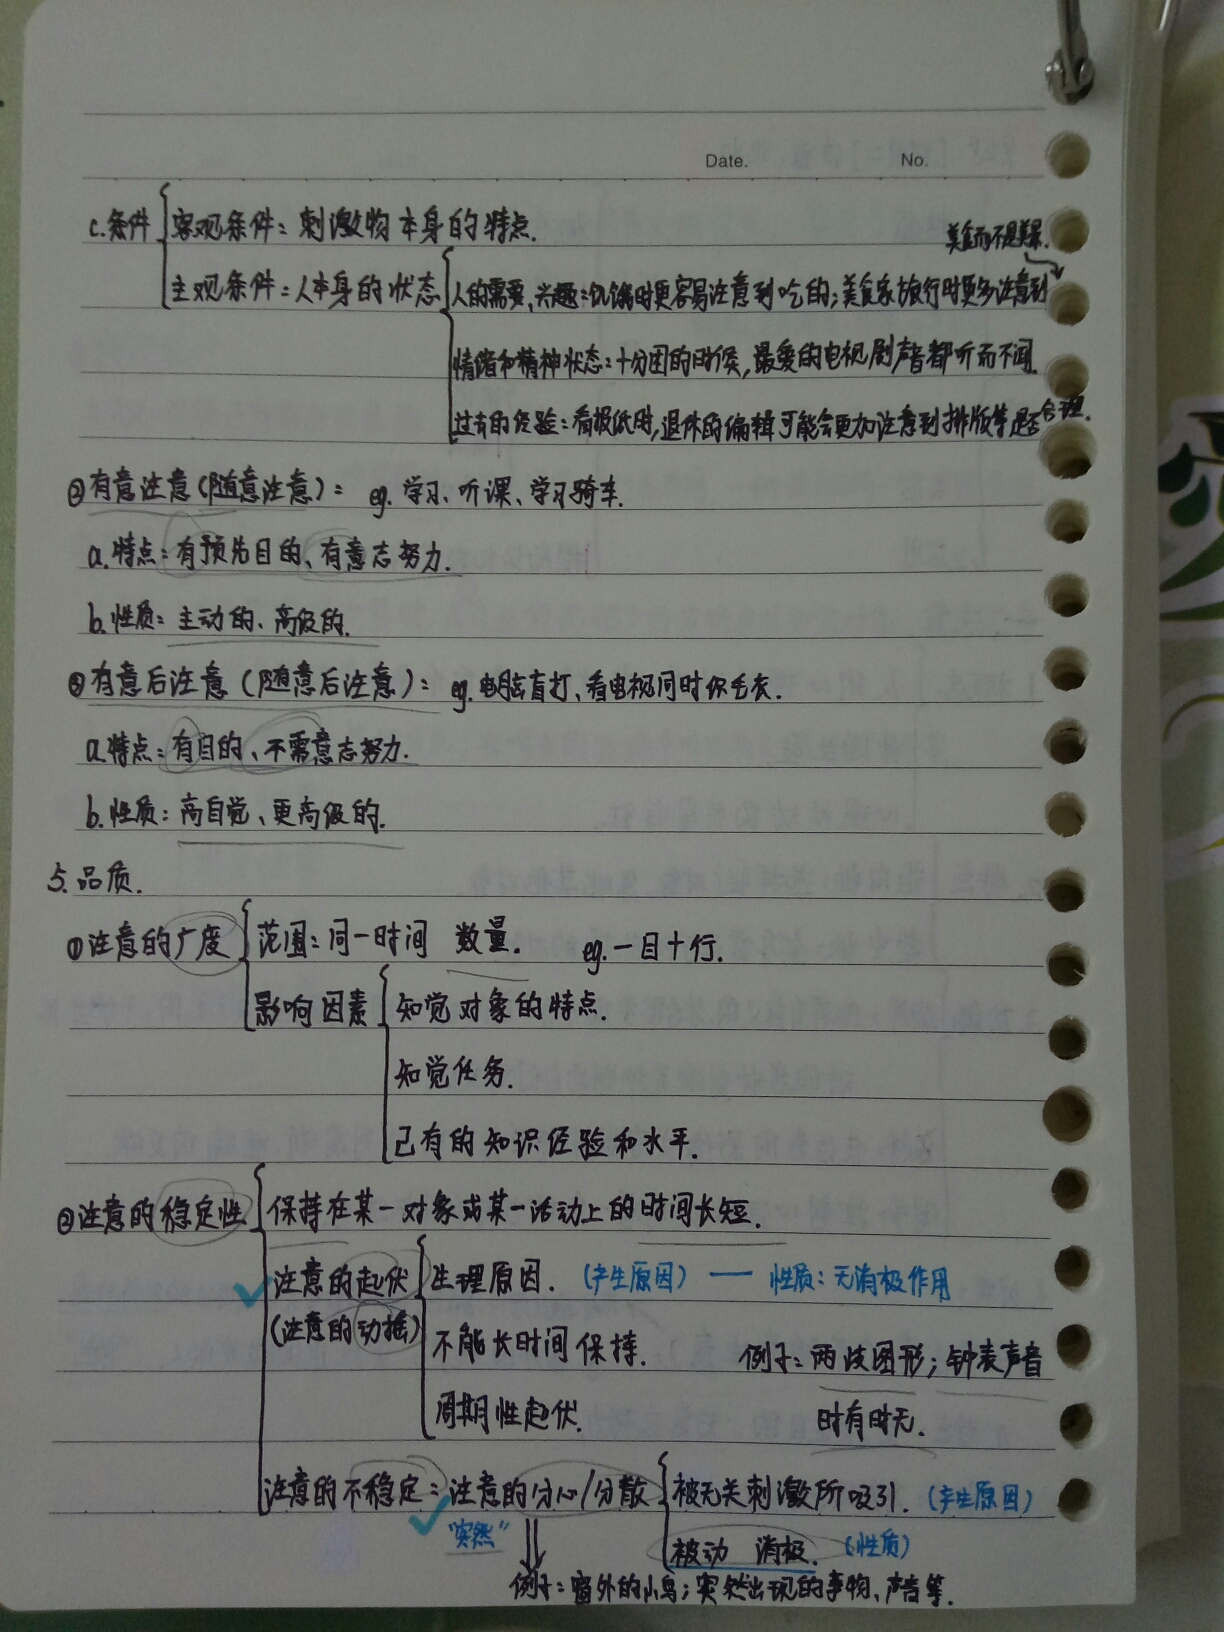 Date. No.
c.条件 客观条件：刺激物本身的特点.
美食而不是美景.
主观条件：人本身的状态 人的需要、兴趣：饥饿时更容易注意到吃的；美食家旅行时更多注意到
情绪和精神状态：十分困的时候，最爱的电视剧声音都听而不闻.
过去的经验：看报纸时，退休的编辑可能会更加注意到排版等是否合理.
②有意注意（随意注意）： eg. 学习、听课、学习骑车.
a.特点：有预先目的、有意志努力.
b.性质：主动的、高级的.
③有意后注意（随意后注意）： eg. 电脑盲打、看电视同时织毛衣.
a.特点：有目的、不需意志努力.
b.性质：高自觉、更高级的.
5.品质.
①注意的广度 范围：同一时间 数量. eg.一目十行.
影响因素 知觉对象的特点.
知觉任务.
已有的知识经验和水平.
②注意的稳定性 保持在某一对象或某一活动上的时间长短.
注意的起伏 生理原因. (产生原因) — 性质：无消极作用
(注意的动摇) 不能长时间保持. 例子：两歧图形；钟表声音
周期性起伏. 时有时无.
注意的不稳定：注意的分心/分散 被无关刺激所吸引. (产生原因)
"突然" 被动 消极. (性质)
例子：窗外的小鸟；突然出现的事物、声音等.